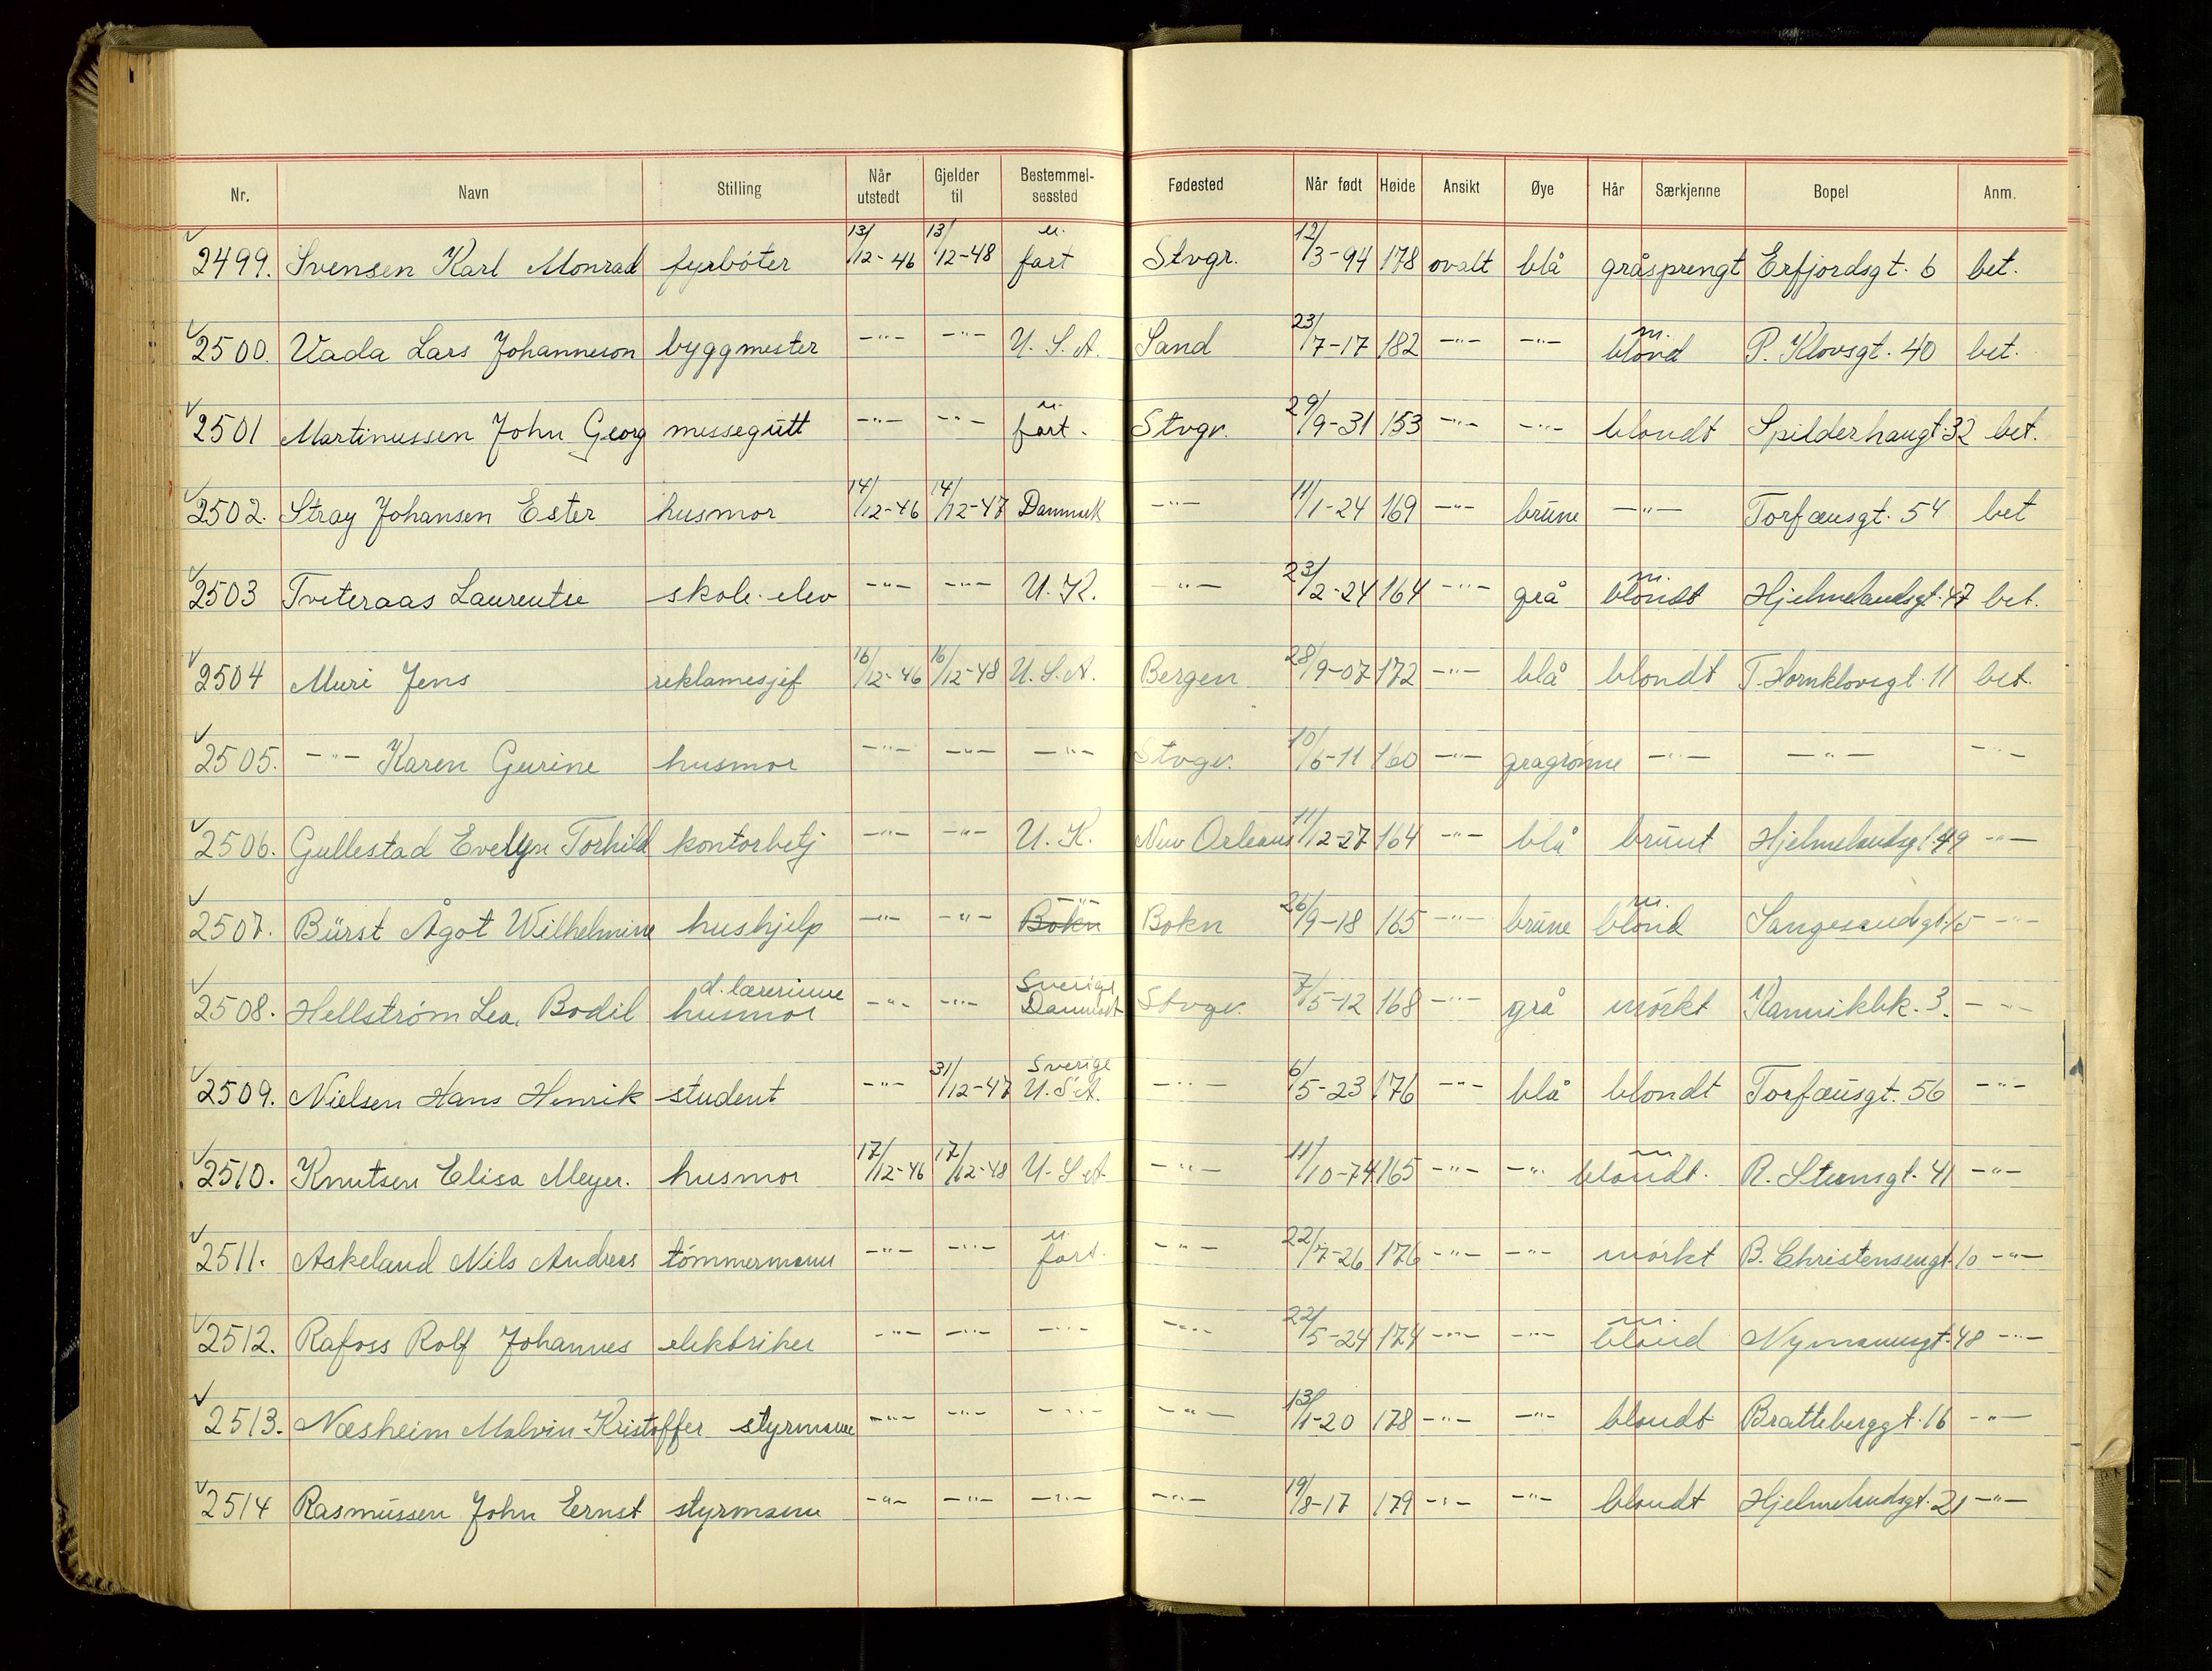 Nr. Navn Stilling Når utstedt Gjelder til Bestemmel-sessted Fødested Når født Høide Ansikt Øye Hår Særkjenne Bopel Anm.
2499. Svensen Karl Monrad fyrbøter 13/12-46 13/12-48 u. fart Stvgr. 12/3-94 178 ovalt blå gråsprengt Erfjordsgt. 6 bet.
2500. Vada Lars Johanneson byggmester -"- -"- U.S.A. Sand 23/7-17 182 -"- -"- m. blond P. Klovsgt. 40 bet.
2501 Martinussen John Georg messegutt -"- -"- u. fart. Stvgr. 29/9-31 153 -"- -"- blondt Spilderhaugt 32 bet.
2502. Stray Johansen Ester husmor 14/12-46 14/12-47 Danmark -"- 11/1-24 169 -"- brune -"- Torfæusgt. 54 bet
2503 Tveteraas Laurentse skole-elev -"- -"- U.K. -"- 23/2-24 164 -"- grå m. blondt Hjelmelandsgt. 47 bet.
2504 Muri Jens reklamesjef 16/12-46 16/12-48 U.S.A. Bergen 28/9-07 172 -"- blå blondt T. Hornklovsgt. 11 bet.
2505. -"- Karen Gurine husmor -"- -"- -"- Stvgr. 10/6-11 160 -"- grågrønne -"- -"- -"-
2506. Gullestad Evelyn Torhild kontorbetj -"- -"- U.K. New Orleans 11/12-27 164 -"- blå brunt Hjelmelandsgt. 49 -"-
2507. Bürst Ågot Wilhelmine hushjelp -"- -"- -"- Bokn Bokn 26/9-18 165 -"- brune m. blond Sangesandsgt. 15 -"-
2508. Hellstrøm Lea, Bodil d. lærerinne husmor -"- -"- Sverige Danmark Stvgr. 7/5-12 168 -"- grå mørkt Kannikbk. 3. -"-
2509. Nielsen Hans Henrik student -"- 31/12-47 Sverige U.S.A. -"- 6/5-23 176 -"- blå blondt Torfæusgt. 56 -"-
2510. Knutsen Elisa Meyer. husmor 17/12-46 17/12-48 U.S.A. -"- 11/10-74 165 -"- -"- m. blondt. R. Steensgt. 41 -"-
2511. Askeland Nils Andreas tømmermann -"- -"- u. fart. -"- 22/7-26 176 -"- -"- mørkt B. Christensengt. 10 -"-
2512. Rafoss Rolf Johannes elektriker -"- -"- -"- -"- 22/5-24 174 -"- -"- m. blond Nymannsgt. 48 -"-
2513. Næsheim Malvin Kristoffer styrmann -"- -"- -"- -"- 13/1-20 178 -"- -"- blondt Bratteberggt. 16 -"-
2514 Rasmussen John Ernst styrmann -"- -"- -"- -"- 19/8-17 179 -"- -"- blondt Hjelmelandsgt. 21 -"-